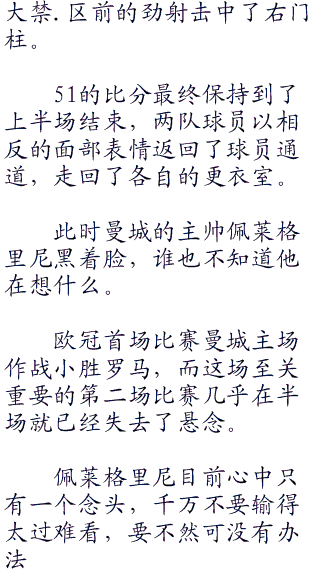 大禁.区前的劲射击中了右门
柱。
51的比分最终保持到了
上半场结束，两队球员以相
反的面部表情返回了球员通
道，走回了各自的更衣室。
此时曼城的主帅佩莱格
里尼黑着脸，谁也不知道他
在想什么。
欧冠首场比赛曼城主场
作战小胜罗马，而这场至关
重要的第二场比赛几乎在半
场就已经失去了悬念。
佩莱格里尼目前心中只
有一个念头，千万不要输得
太过难看，要不然可没有办
法